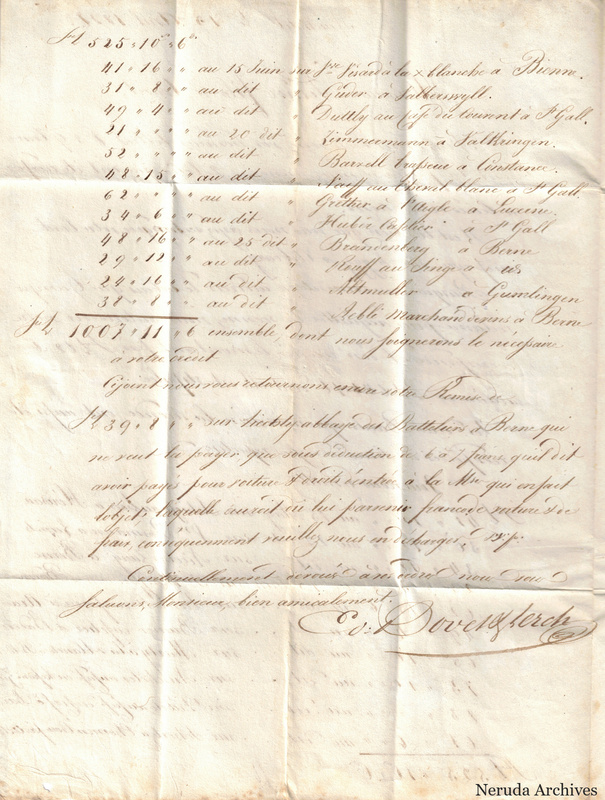 525 " 10 " 6
41 " 16 " " au 15 Juin sur à la x blanche à Bienne.
31 " 8 " " au dit " Guder à
49 " 4 " " au dit " au du à St Gall.
21 " " " " au 20 dit " Zimmermann à
52 " " " " au dit " Barrell brasseur à Constance.
48 " 15 " " au dit " Naeff au Cheval blanc à St Gall.
62 " " " au dit " Grether à l'Aigle à Lucerne.
34 " 6 " " au dit " à St Gall
48 " 16 " " au 25 dit " Brandenberg à Berne
29 " 12 " " au dit " au Singe à
24 " 16 " " au dit " Altmuller à Gumlingen
38 " 8 " " au dit " Marchand de vins à Berne
1007 " 11 " 6 ensemble, dont nous soignerons le nécessaire
à votre crédit
Cijoint nous vous retournons encore votre Remise de
39 " 8 " " sur abbaye des Batteliers à Berne qui
ne veut la payer que sous déduction de 6 à 7 francs qu'il dit
avoir payés pour voiture & droits d'entrée à la Mse qui en fait
l'objet, laquelle auroit dû lui parvenir franco de voiture & de
frais, conséquemment veuillez nous en décharger
Continuellement dévoués à vos ordres nous vous
saluons, Monsieur, bien amicalement.
Dovel & Lerch
Neruda Archives